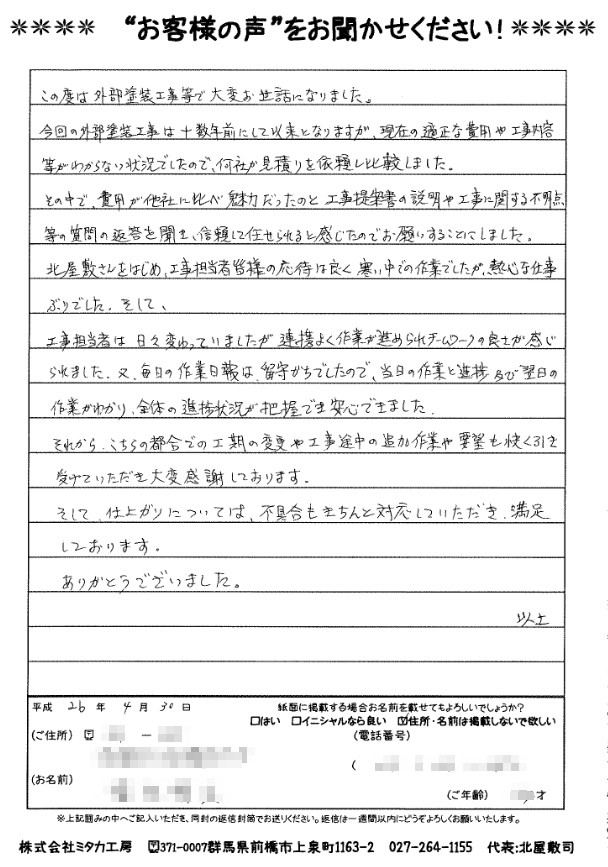 ＊＊＊＊ “お客様の声”をお聞かせください！＊＊＊＊
この度は外部塗装工事等で大変お世話になりました。
今回の外部塗装工事は十数年前にして以来となりますが、現在の適正な費用や工事内容
等がわからない状況でしたので、何社か見積りを依頼し比較しました。
その中で、費用が他社に比べ魅力だったのと工事提案書の説明や工事に関する不明点
等の質問の返答を聞き、信頼して任せられると感じたのでお願いすることにしました。
北屋敷さんをはじめ、工事担当者皆様の応待は良く寒い中での作業でしたが、熱心な仕事
ぶりでした。そして、
工事担当者は日々変わっていましたが連携よく作業が進められチームワークの良さが感じ
られました。又、毎日の作業日報は、留守がちでしたので、当日の作業と進捗及び翌日の
作業がわかり、全体の進捗状況が把握でき安心できました。
それから、こちらの都合での工期の変更や工事途中の追加作業や要望も快く引き
受けていただき大変感謝しております。
そして、仕上がりについては、不具合もきちんと対応していただき、満足
しております。
ありがとうございました。
以上
平成 26 年 4 月 30 日 紙面に掲載する場合お名前を載せてもよろしいでしょうか？
□はい □イニシャルなら良い ☑住所・名前は掲載しないで欲しい
(ご住所) 〒 － (電話番号)
(
(お名前) (ご年齢) 才
※上記囲みの中へご記入いただき、同封の返信封筒でお送りください。返信は一週間以内にどうぞよろしくお願いいたします。
株式会社ミタカ工房 〒371-0007群馬県前橋市上泉町1163-2 027-264-1155 代表:北屋敷司